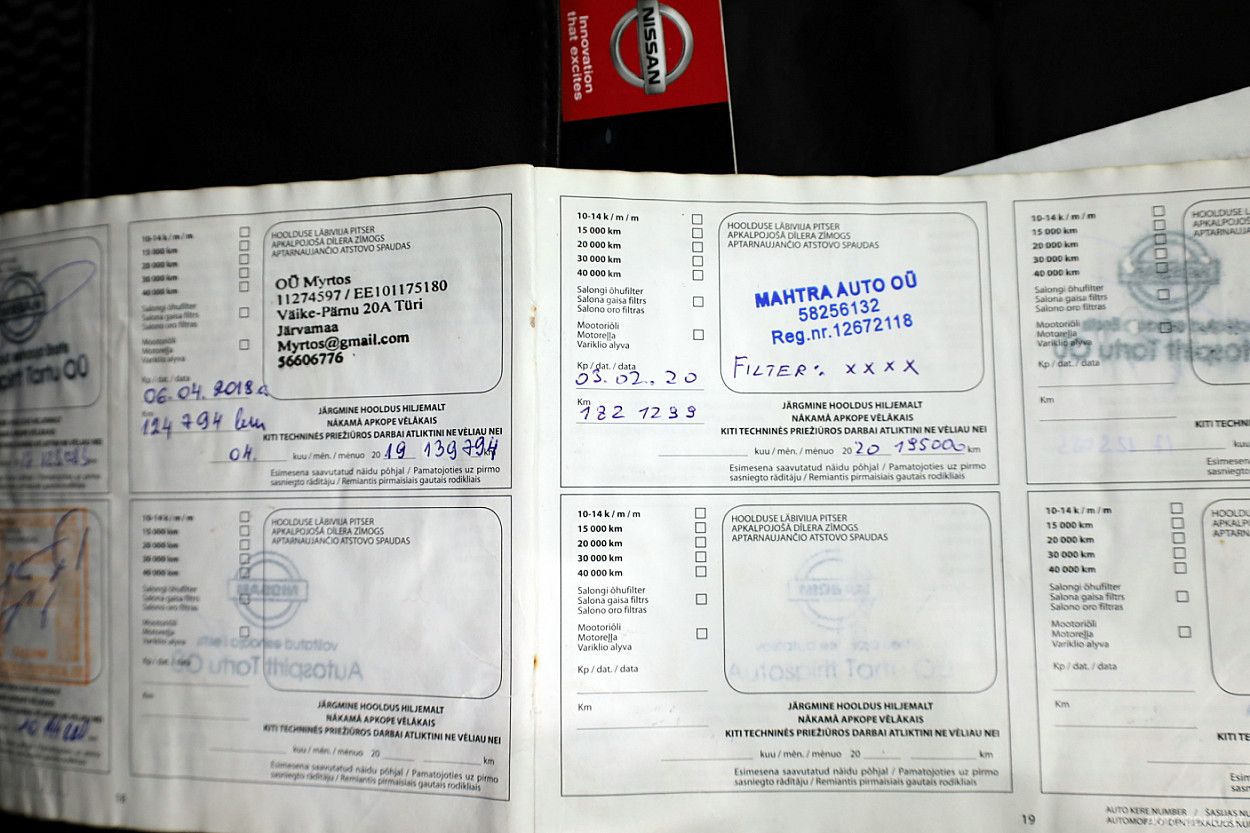 NISSAN
Innovation
that excites
10-14 k / m / m
15 000 km
20 000 km
30 000 km
40 000 km
Salongi õhufilter
Salona gaisa filtrs
Salono oro filtras
Mootoriõli
Motoreļļa
Variklio alyva
Kp / dat. / data
06.04.2018a
Km
124 794 km
HOOLDUSE LÄBIVIIJA PITSER
APKALPOJOŠĀ DĪLERA ZĪMOGS
APTARNAUJANČIO ATSTOVO SPAUDAS
OÜ Myrtos
11274597 / EE101175180
Väike-Pärnu 20A Türi
Järvamaa
Myrtos@gmail.com
56606776
JÄRGMINE HOOLDUS HILJEMALT
NĀKAMĀ APKOPE VĒLĀKAIS
KITI TECHNINĖS PRIEŽIŪROS DARBAI ATLIKTINI NE VĖLIAU NEI
04. kuu / mēn. / mėnuo 20 19 139794 km
Esimesena saavutatud näidu põhjal / Pamatojoties uz pirmo
sasniegto rādītāju / Remiantis pirmaisiais gautais rodikliais
10-14 k / m / m
15 000 km
20 000 km
30 000 km
40 000 km
Salongi õhufilter
Salona gaisa filtrs
Salono oro filtras
Mootoriõli
Motoreļļa
Variklio alyva
Kp / dat. / data
03.02.20
Km
182 1299
HOOLDUSE LÄBIVIIJA PITSER
APKALPOJOŠĀ DĪLERA ZĪMOGS
APTARNAUJANČIO ATSTOVO SPAUDAS
MAHTRA AUTO OÜ
58256132
Reg.nr.12672118
FILTER: XXXX
JÄRGMINE HOOLDUS HILJEMALT
NĀKAMĀ APKOPE VĒLĀKAIS
KITI TECHNINĖS PRIEŽIŪROS DARBAI ATLIKTINI NE VĖLIAU NEI
kuu / mēn. / mėnuo 20 20 195000 km
Esimesena saavutatud näidu põhjal / Pamatojoties uz pirmo
sasniegto rādītāju / Remiantis pirmaisiais gautais rodikliais
10-14 k / m / m
15 000 km
20 000 km
30 000 km
40 000 km
Salongi õhufilter
Salona gaisa filtrs
Salono oro filtras
Mootoriõli
Motoreļļa
Variklio alyva
Kp / dat. / data
Km
10-14 k / m / m
15 000 km
20 000 km
30 000 km
40 000 km
Salongi õhufilter
Salona gaisa filtrs
Salono oro filtras
Mootoriõli
Motoreļļa
Variklio alyva
Kp / dat. / data
Km
HOOLDUSE LÄBIVIIJA PITSER
APKALPOJOŠĀ DĪLERA ZĪMOGS
APTARNAUJANČIO ATSTOVO SPAUDAS
JÄRGMINE HOOLDUS HILJEMALT
NĀKAMĀ APKOPE VĒLĀKAIS
KITI TECHNINĖS PRIEŽIŪROS DARBAI ATLIKTINI NE VĖLIAU NEI
kuu / mēn. / mėnuo 20 km
Esimesena saavutatud näidu põhjal / Pamatojoties uz pirmo
sasniegto rādītāju / Remiantis pirmaisiais gautais rodikliais
18
10-14 k / m / m
15 000 km
20 000 km
30 000 km
40 000 km
Salongi õhufilter
Salona gaisa filtrs
Salono oro filtras
Mootoriõli
Motoreļļa
Variklio alyva
Kp / dat. / data
Km
HOOLDUSE LÄBIVIIJA PITSER
APKALPOJOŠĀ DĪLERA ZĪMOGS
APTARNAUJANČIO ATSTOVO SPAUDAS
JÄRGMINE HOOLDUS HILJEMALT
NĀKAMĀ APKOPE VĒLĀKAIS
KITI TECHNINĖS PRIEŽIŪROS DARBAI ATLIKTINI NE VĖLIAU NEI
kuu / mēn. / mėnuo 20 km
Esimesena saavutatud näidu põhjal / Pamatojoties uz pirmo
sasniegto rādītāju / Remiantis pirmaisiais gautais rodikliais
19
10-14 k / m / m
15 000 km
20 000 km
30 000 km
40 000 km
Salongi õhufilter
Salona gaisa filtrs
Salono oro filtras
Mootoriõli
Motoreļļa
Variklio alyva
Kp / dat. / data
Km
AUTO KERE NUMBER